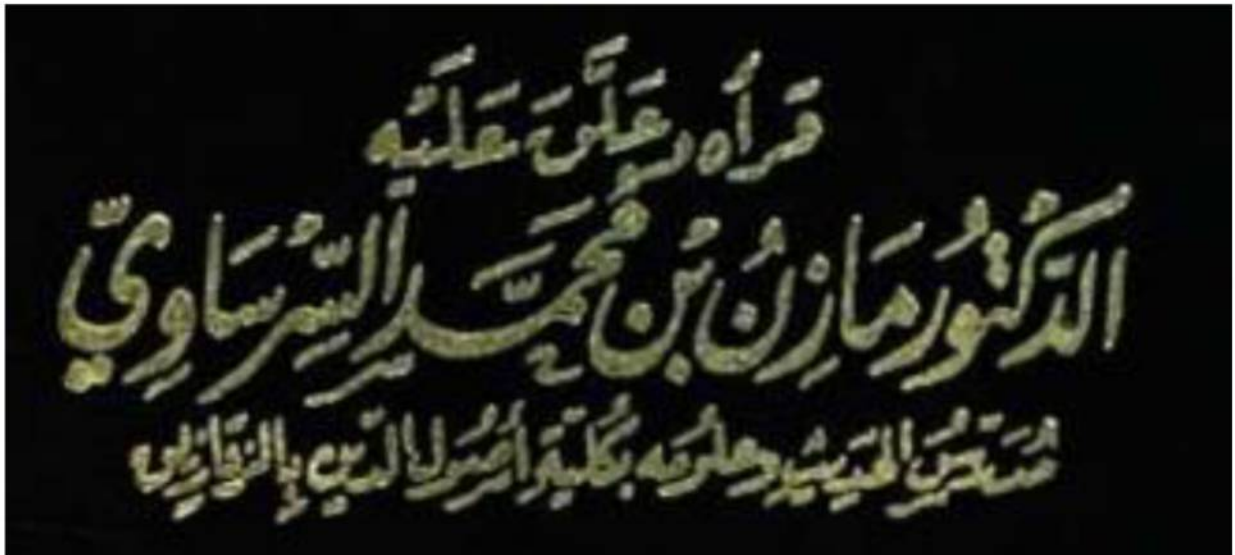 قَرَأَهُ وَعَلَّقَ عَلَيْهِ
الدُّكْتُورُ مَازِنُ بْنُ مُحَمَّدٍ السِّرْسَاوِيّ
مُدَرِّسُ الحَدِيثِ وَعُلُومِهِ بِكُلِّيَّةِ أُصُولِ الدِّينِ بِالزَّقَازِيقِ